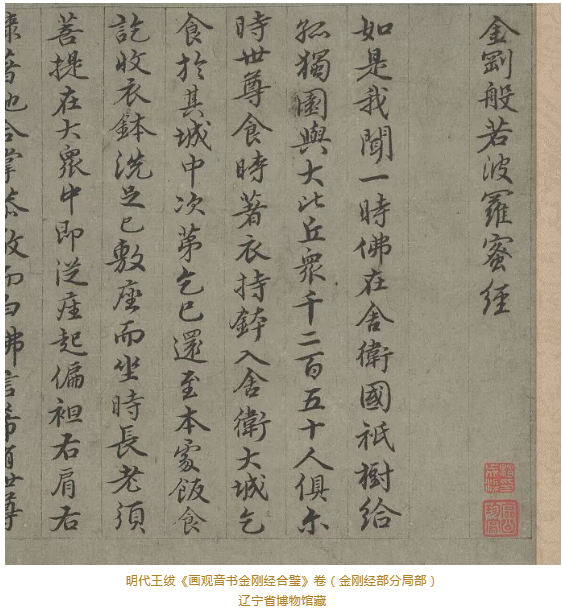 金剛般若波羅蜜經
如是我聞一時佛在舍衛國祇樹給
孤獨園與大比丘眾千二百五十人俱尒
時世尊食時著衣持鉢入舍衛大城乞
食於其城中次第乞已還至本處飯食
訖收衣鉢洗足已敷座而坐時長老須
菩提在大眾中即從座起偏袒右肩右
膝著地合掌恭敬而白佛言希有世尊
明代王绂《画观音书金刚经合璧》卷（金刚经部分局部）
辽宁省博物馆藏